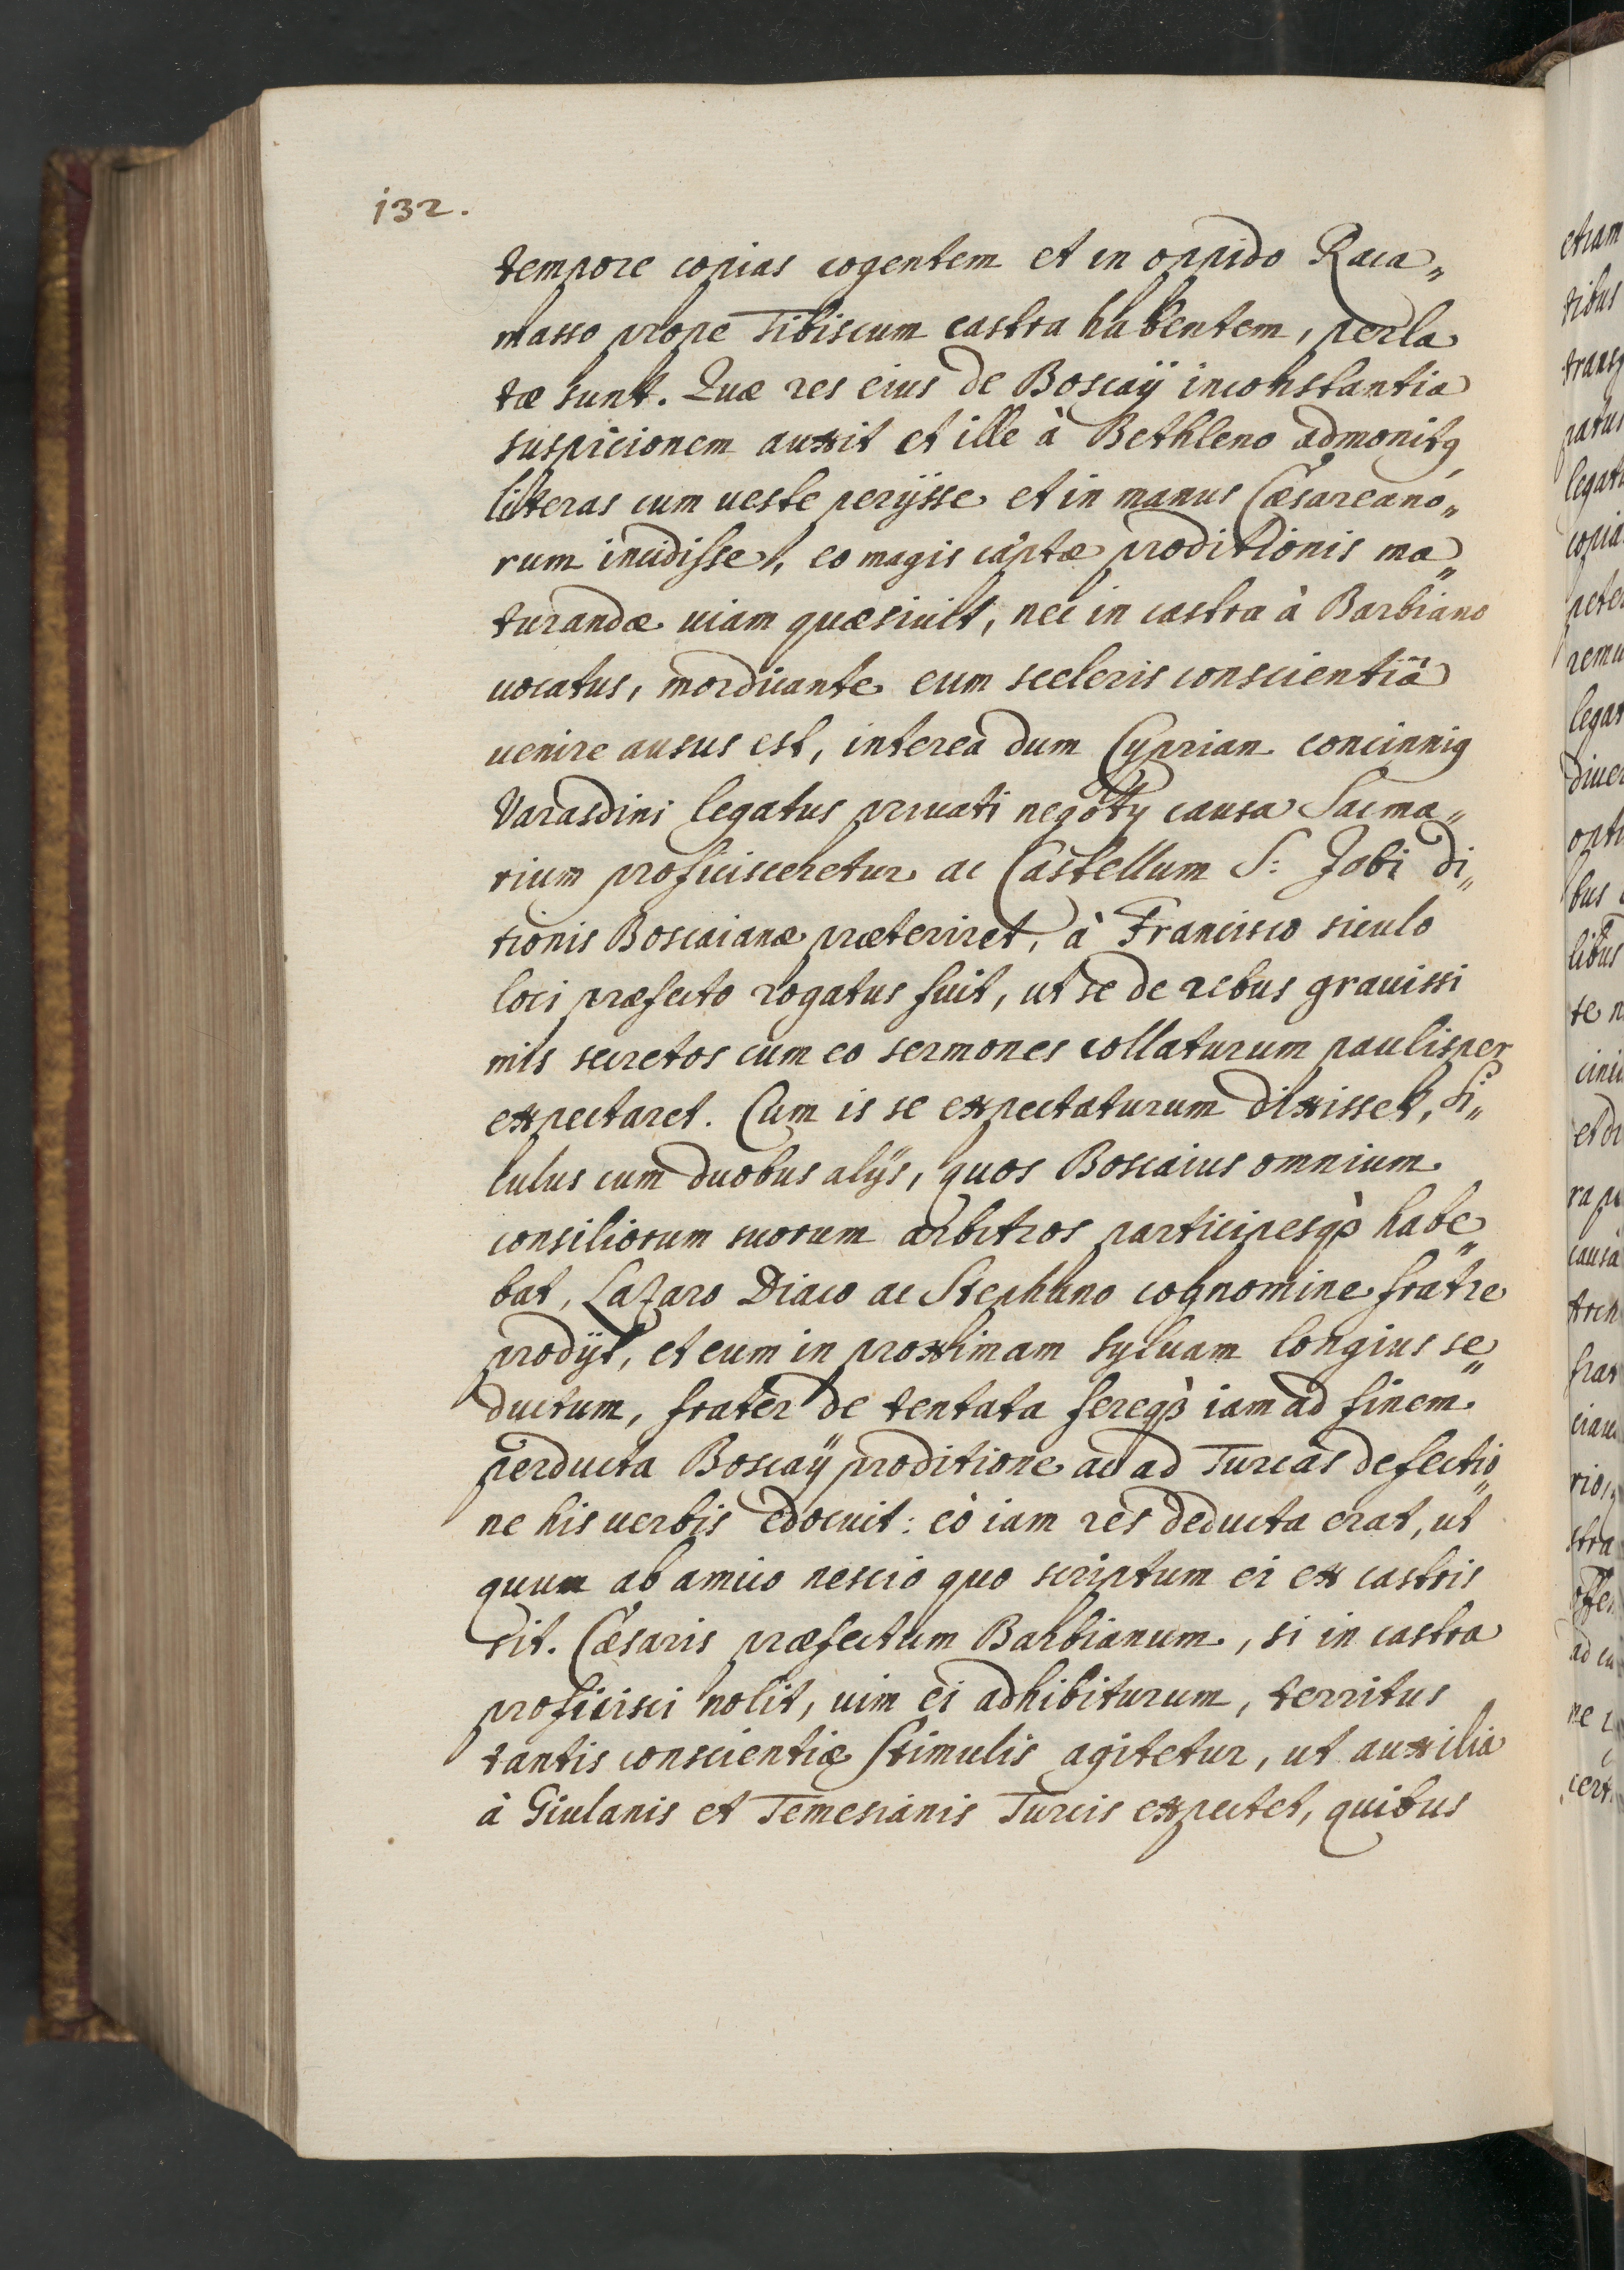 132.
tempore copias cogentem et in oppido Raca„
masso prope Tibiscum castra habentem, perla
tæ sunt. Quæ res eius de Boscaÿ inconstantia
suspicionem auxit et ille à Bethleno admonitꝰ
litteras cum ueste perijsse et in manus Cæsareano„
rum incidisse, eo magis captæ proditionis ma„
turandæ uiam quæsiuit, nec in castra à Barbiano
uocatus, mordicante eum sceleris conscientiâ
uenire ausus est, interea dum Cyprian concinniꝰ
Varasdini legatus priuati negotÿ causa Sacma„
rium proficisceretur ac Castellum S: Jobi di„
tionis Boscaianæ præteriret, à Francisco siculo
loci præfecto rogatus fuit, ut se de rebus grauissi
mis secretos cum eo sermones collaturum paulisper
expectaret. Cum is se expectaturum dixisset, Si„
culus cum duobus alijs, quos Boscaius omnium
consiliorum suorum arbitros participesqꝫ habe„
bat, Lazaro Diaco ac Stephano cognomine fratre
prodijt, et eum in proximam syluam longius se„
ductum, frater de tentata fereqꝫ iam ad finem
perducta Boscaÿ proditione ac ad Turcas defectio„
ne his uerbis edocuit: eò iam res deducta erat, ut
quum ab amico nescio quo scriptum ei ex castris
sit. Cæsaris præfectum Barbianum, si in castra
proficisci nolit, uim ei adhibiturum, territus
tantis conscientiæ stimulis agitetur, ut auxilia
à Giulanis et Temesianis Turcis expectet, quibus